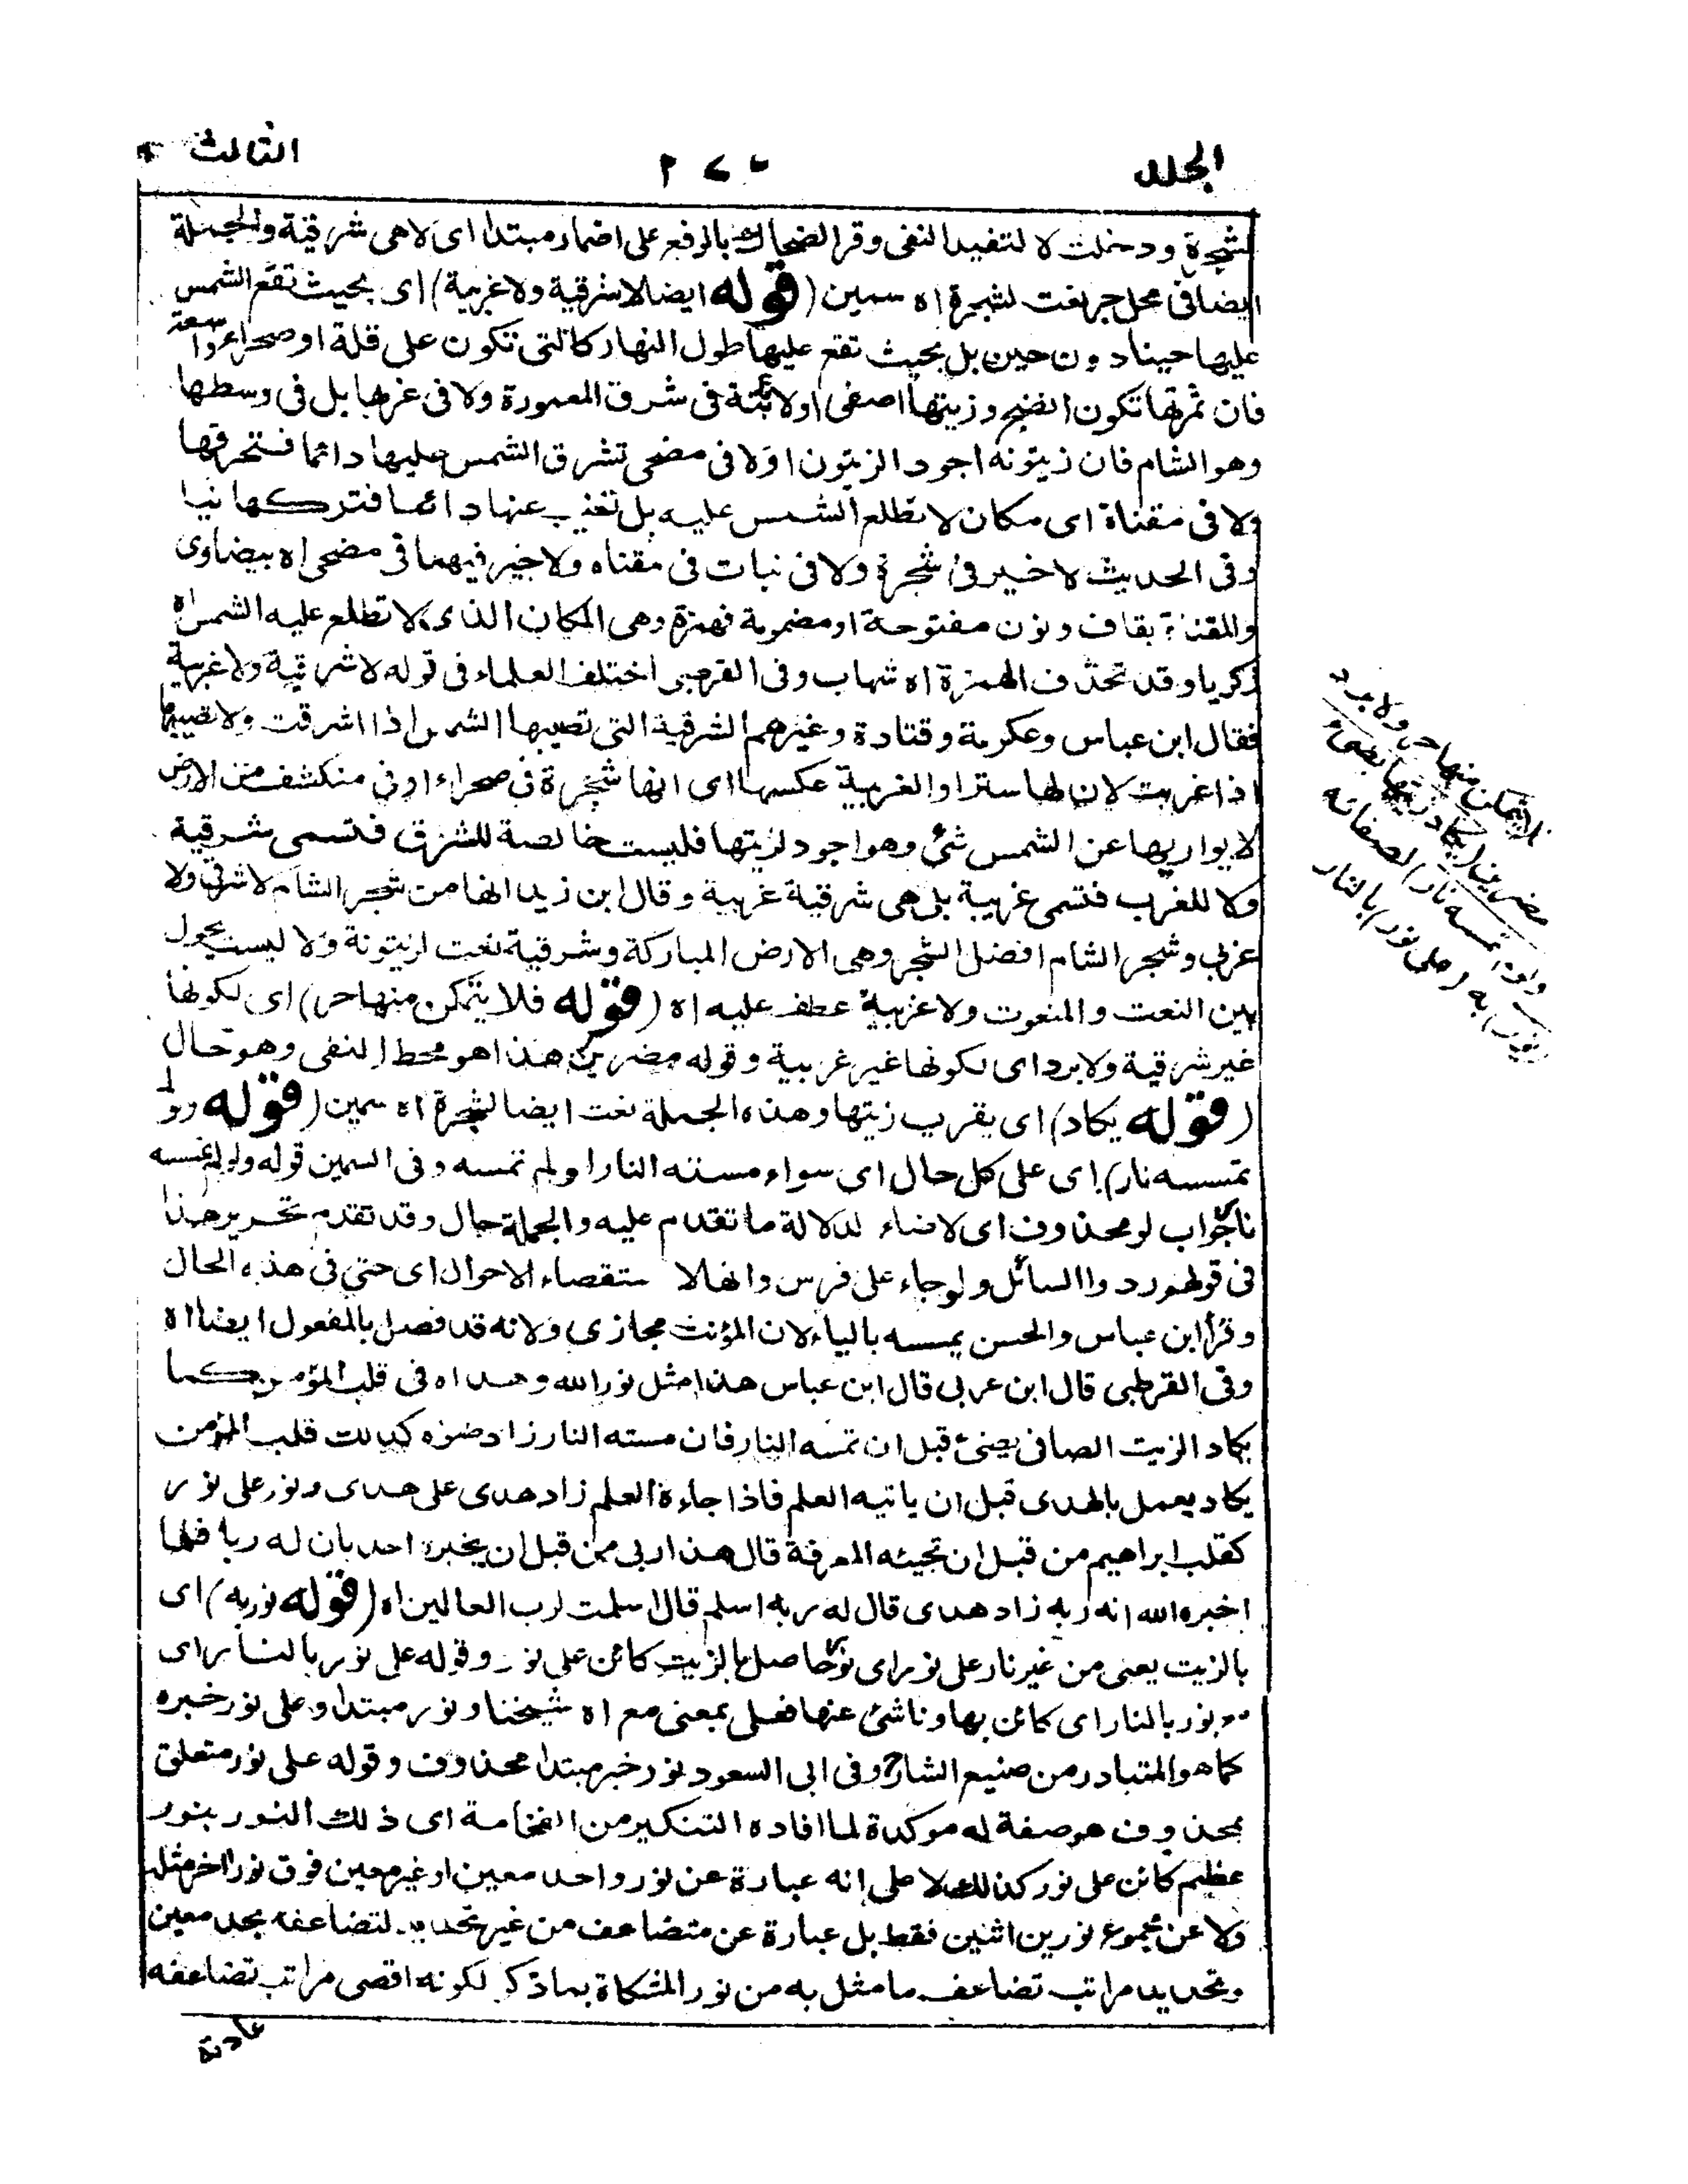 الجلد
٢٧٠
الثالث
لشجرة ودخلت لا لتفيد النفى وقرا الضحاك بالرفع على اضمار مبتدا اى لا هى شرقية والجملة
ايضا فى محل جر نعت لشجرة اه سمين (قوله ايضا لا شرقية ولا غربية) اى بحيث تقع الشمس
عليها حينا دون حين بل بحيث تقع عليها طول النهار كالتى تكون على قلة او صحراء واسعة
فان ثمرتها تكون انضج وزيتها اصفى او لا نابتة فى شرق المعمورة ولا فى غربها بل فى وسطها
وهو الشام فان زيتونه اجود الزيتون او لا فى مضحى تشرق الشمس عليها دائما فتحرقها
ولا فى مقناة اى مكان لا تطلع الشمس عليه بل تغيب عنها دائما فتتركها نيا
وفى الحديث لا خير فى شجرة ولا فى نبات فى مقناه ولا خير فيهما فى مضحى اه بيضاوى
والمقناة بقاف ونون مفتوحة او مضمومة فهمزة وهى المكان الذى لا تطلع عليه الشمس اه
زكريا وقد تحذف الهمزة اه شهاب وفى القرطبى اختلف العلماء فى قوله لا شرقية ولا غربية
فقال ابن عباس وعكرمة وقتادة وغيرهم الشرقية التى تصيبها الشمس اذا اشرقت ولا تصيبها
اذا غربت لان لها سترا والغربية عكسها اى انها شجرة فى صحراء او فى منكشف من الارض
لا يواريها عن الشمس شئ وهو اجود لزيتها فليست خالصة للشرق فتسمى شرقية
ولا للغرب فتسمى غربية بل هى شرقية غربية وقال ابن زيد انها من شجر الشام لا شرقى ولا
غربى وشجر الشام افضل الشجر وهى الارض المباركة وشرقية نعت لزيتونة ولا ليست تحول
بين النعت والمنعوت ولا غربية عطف عليه اه (قوله فلا يتمكن منها حر) اى لكونها
غير شرقية ولا برد اى لكونها غير غربية وقوله مضرين هذا هو محط النفى وهو حال
(قوله يكاد) اى يقرب زيتها وهذه الجملة نعت ايضا لشجرة اه سمين (قوله ولو لم
تمسسه نار) اى على كل حال اى سواء مسته النار او لم تمسه وفى السمين قوله ولو لم تمسسه
نار جواب لو محذوف اى لاضاء لدلالة ما تقدم عليه والجملة حال وقد تقدم تحرير هذا
فى قولهم ردوا السائل ولو جاء على فرس وانها لاستقصاء الاحوال اى حتى فى هذه الحال
وقرأ ابن عباس والحسن يمسسه بالياء لان المؤنث مجازى ولانه قد فصل بالمفعول ايضا اه
وفى القرطبى قال ابن عربى قال ابن عباس هذا مثل نور الله وهداه فى قلب المؤمن كما
يكاد الزيت الصافى يضئ قبل ان تمسه النار فان مسته النار زاد ضوءه كذلك قلب المؤمن
يكاد يعمل بالهدى قبل ان ياتيه العلم فاذا جاءه العلم زاد هدى على هدى ونور على نور
كقلب ابراهيم من قبل ان تجيئه المعرفة قال هذا ربى من قبل ان يخبره احد بان له ربا فلما
اخبره الله انه ربه زاد هدى قال له ربه اسلم قال اسلمت لرب العالمين اه (قوله نور به) اى
بالزيت يعنى من غير نار على نور اى نور حاصل بالزيت كائن على نور وقوله على نور بالنار اى
مع نور بالنار اى كائن بها وناشئ عنها فعلى بمعنى مع اه شيخنا ونور مبتدا وعلى نور خبره
كما هو المتبادر من صنيع الشارح وفى ابى السعود نور خبر مبتدا محذوف وقوله على نور متعلق
بمحذوف هو صفة له موكدة لما افاده التنكير من الفخامة اى ذلك النور نور
عظيم كائن على نور كذلك لا على انه عبارة عن نور واحد معين او غير معين فوق نور اخر مثله
ولا عن مجموع نورين اثنين فقط بل عبارة عن متضاعف من غير تحديد لتضاعفه بحد معين
وتحديد مراتب تضاعف ما مثل به من نور المشكاة بما ذكر لكونه اقصى مراتب تضاعفه
عادة
يتمكن منها حر ولا برد
مضرين (يكاد زيتها يضئ
ولو لم تمسسه نار) لصفائه
(نور) به (على نور) بالنار